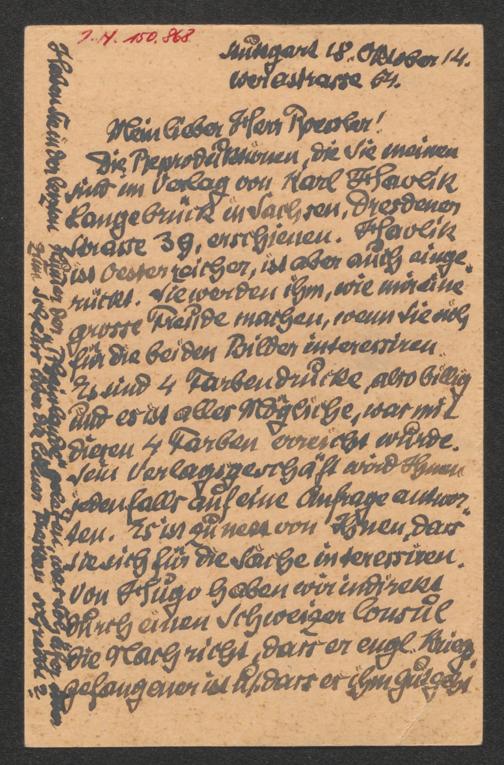 J. N. 150.868
Stuttgart 18. Oktober 14.
Werastrasse 64.
Mein lieber Herr Roessler!
Die Reproduktionen, die Sie meinen
sind im Verlag von Karl Havlik
Langebrück in Sachsen, Dresdener
Strasse 39, erschienen. Havlik
ist Oesterreicher, ist aber auch einge-
rückt. Sie werden ihm, wie mir eine
grosse Freude machen, wenn Sie sich
für die beiden Bilder interessiren
Es sind 4 Farbendrucke, also billig
und es ist alles Mögliche, was mit
diesen 4 Farben erreicht wurde.
Sein Verlagsgeschäft wird Ihnen
jedenfalls auf eine Anfrage antwor-
ten. Es ist zu nett von Ihnen, dass
Sie sich für die Sache interessiren.
Von Hugo haben wir indirekt
durch einen Schweizer Consul
die Nachricht, dass er engl. Krieg
gefangener ist u. dass es ihm gut geht
Haben Sie in der letzten Nummer der "Rheinlande" gelesen, was
über die Cölner